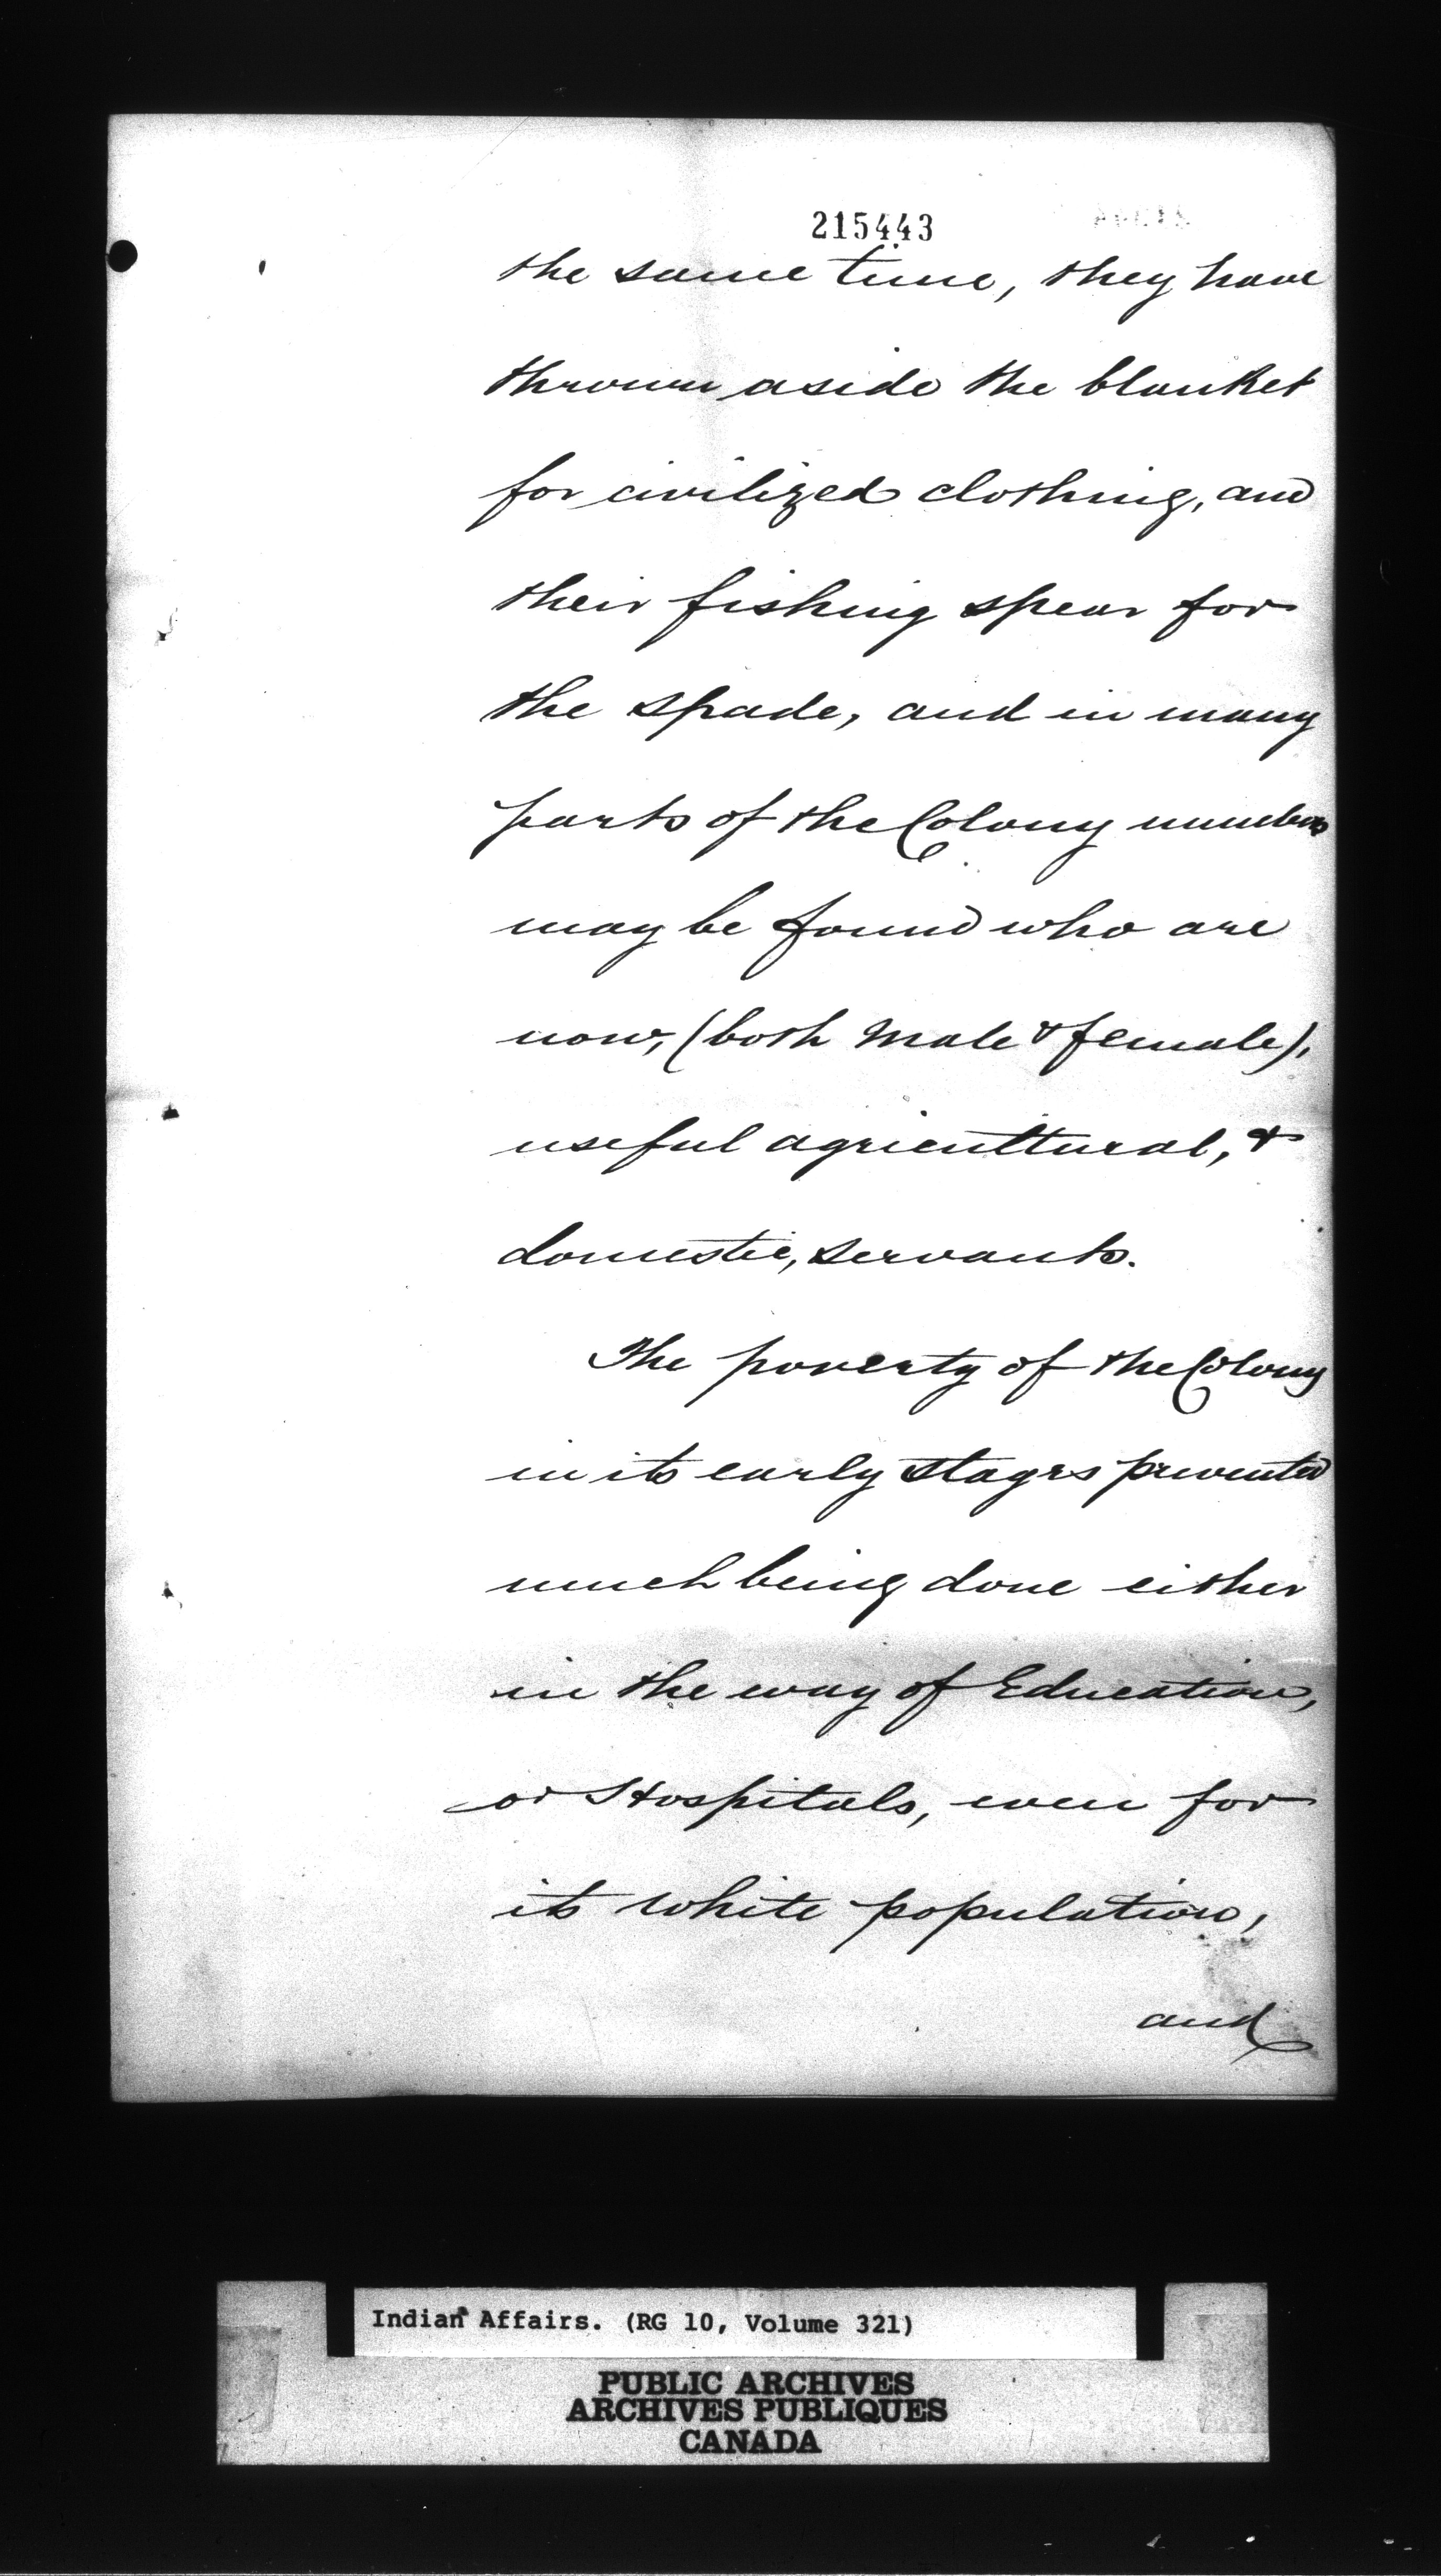 215443
the same time, they have
thrown aside the blanket
for civilized clothing, and
their fishing spear for
the spade, and in many
parts of the Colony numbers
may be found who are
now, (both Male & female),
useful agricultural, &
domestic, servants.
The poverty of the Colony
in its early stages prevented
much being done either
in the way of Education,
or Hospitals, even for
its white population,
and
Indian Affairs. (RG 10, Volume 321)
PUBLIC ARCHIVES
ARCHIVES PUBLIQUES
CANADA